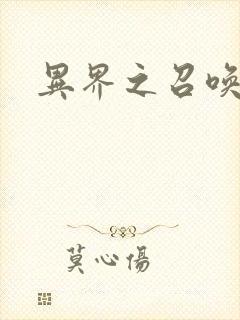 異界之召喚
莫心傷